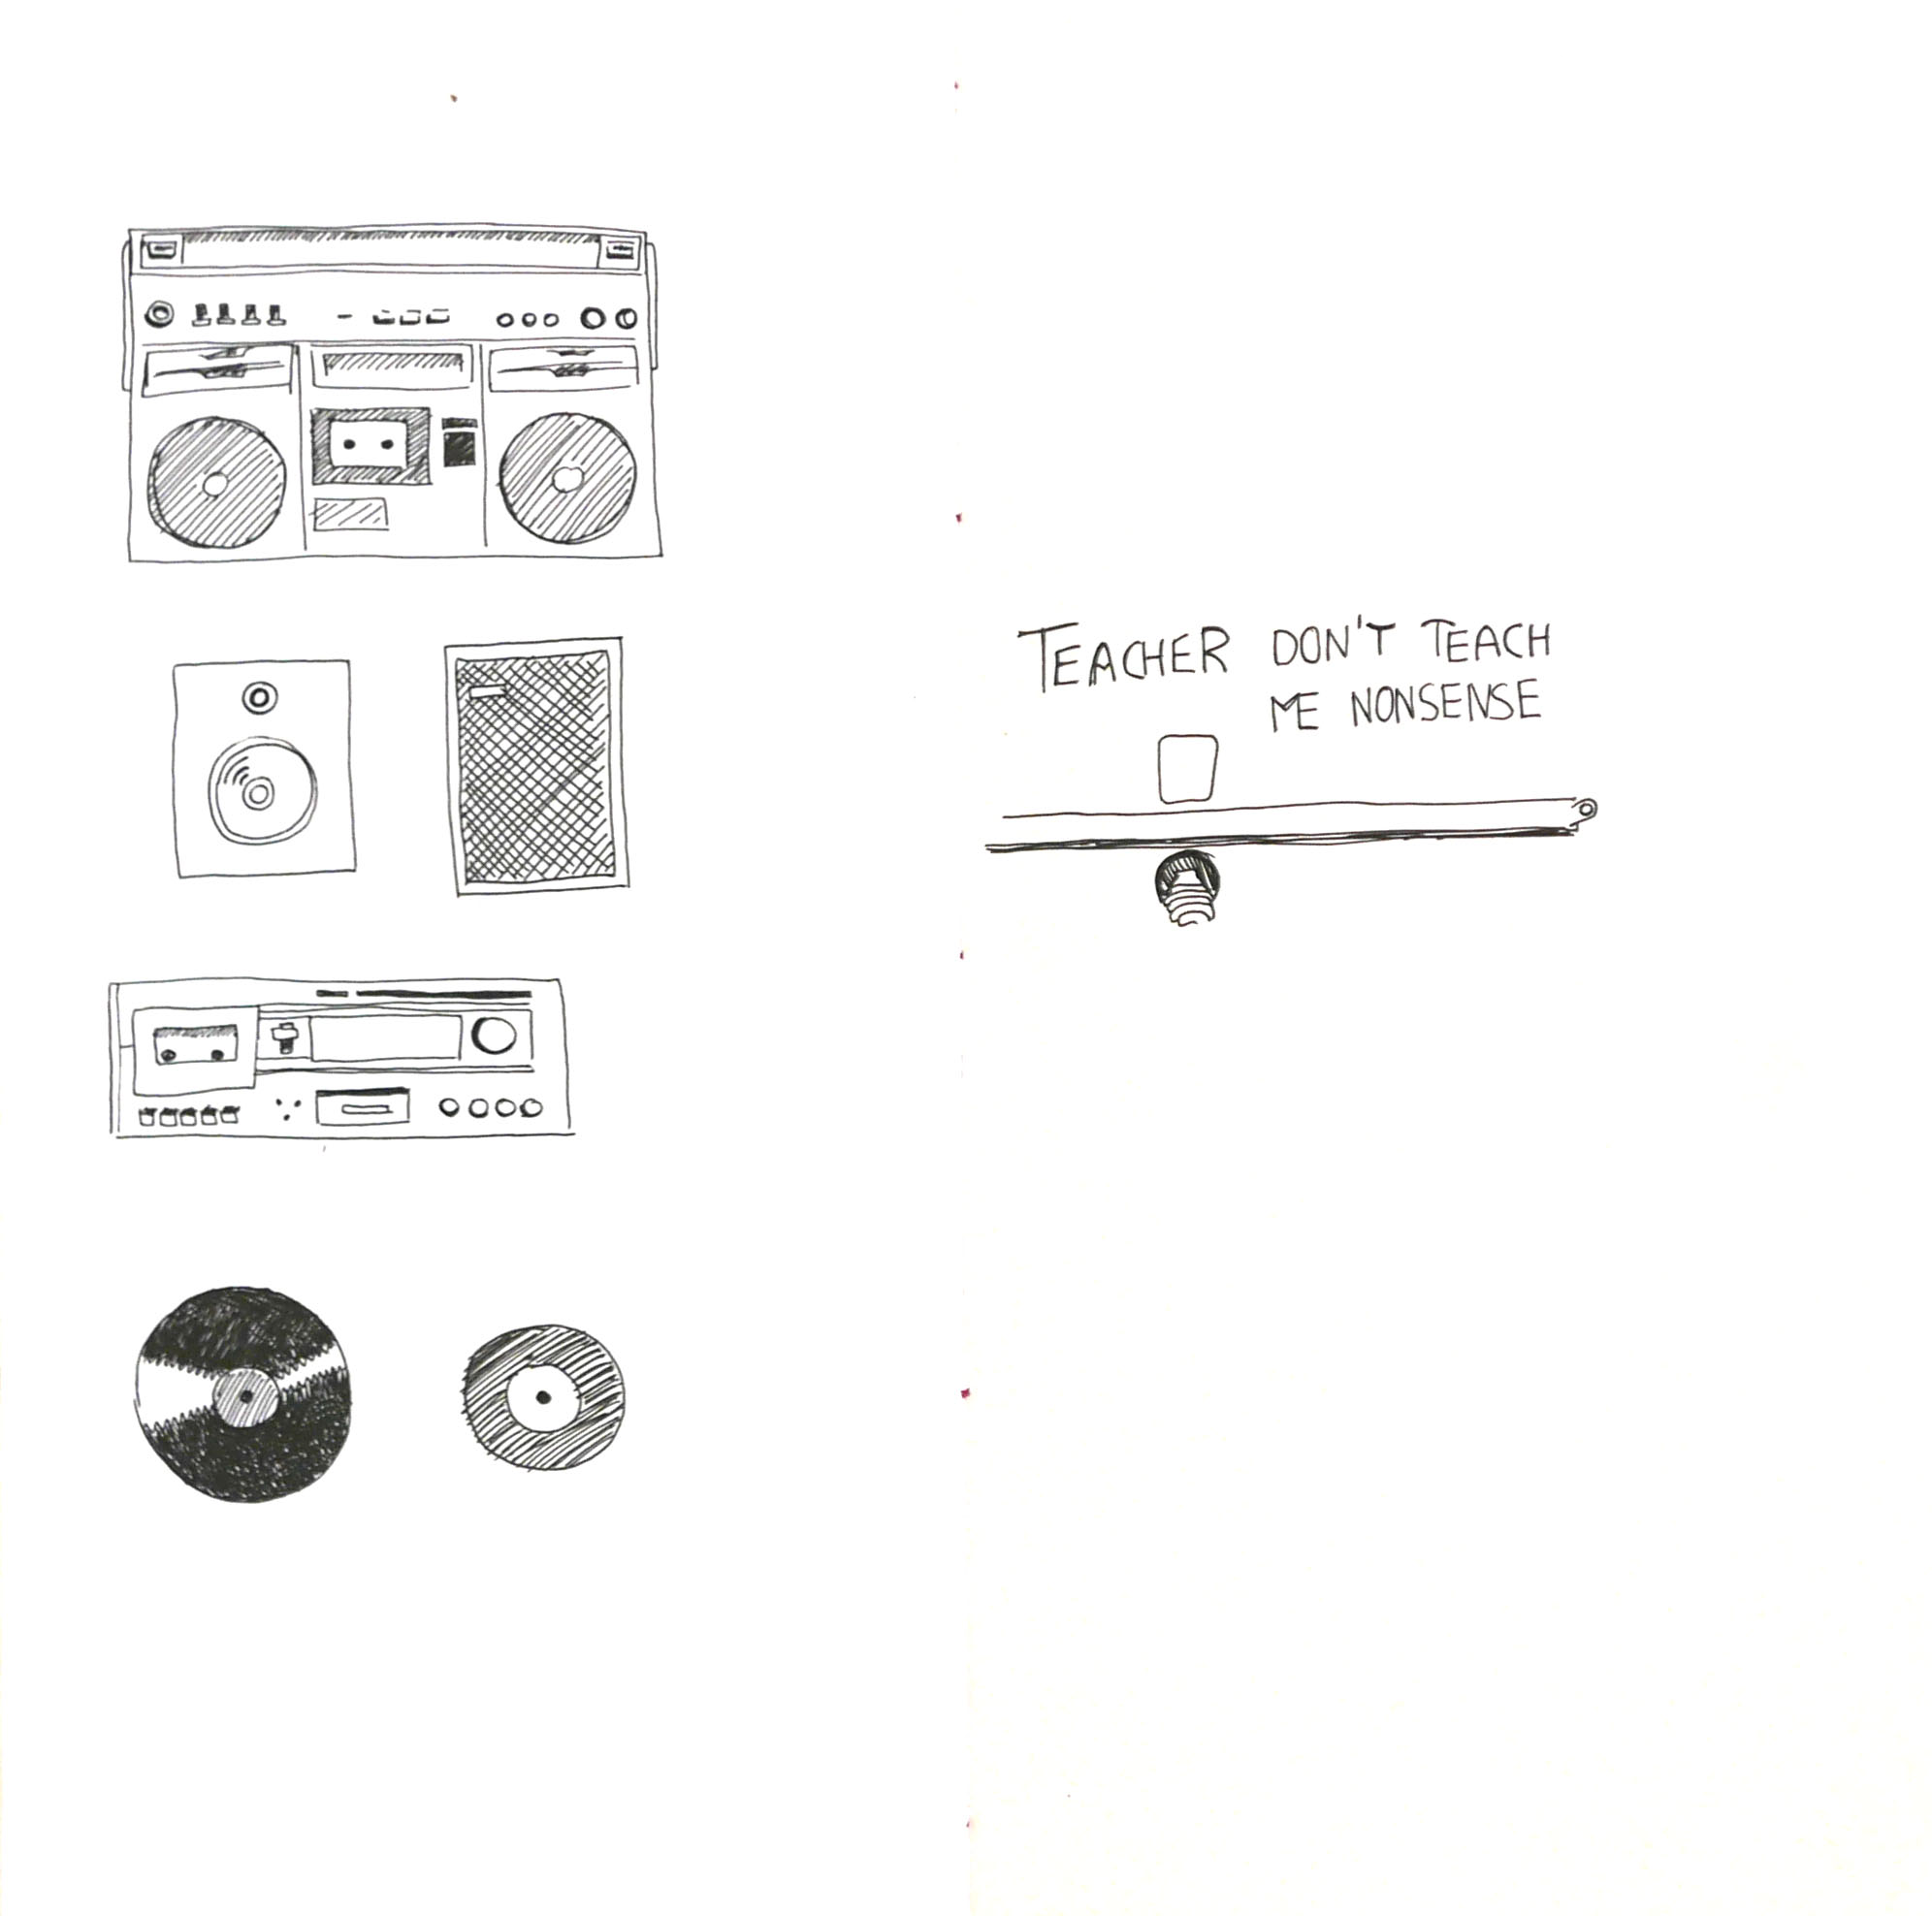 TEACHER DON'T TEACH
ME NONSENSE